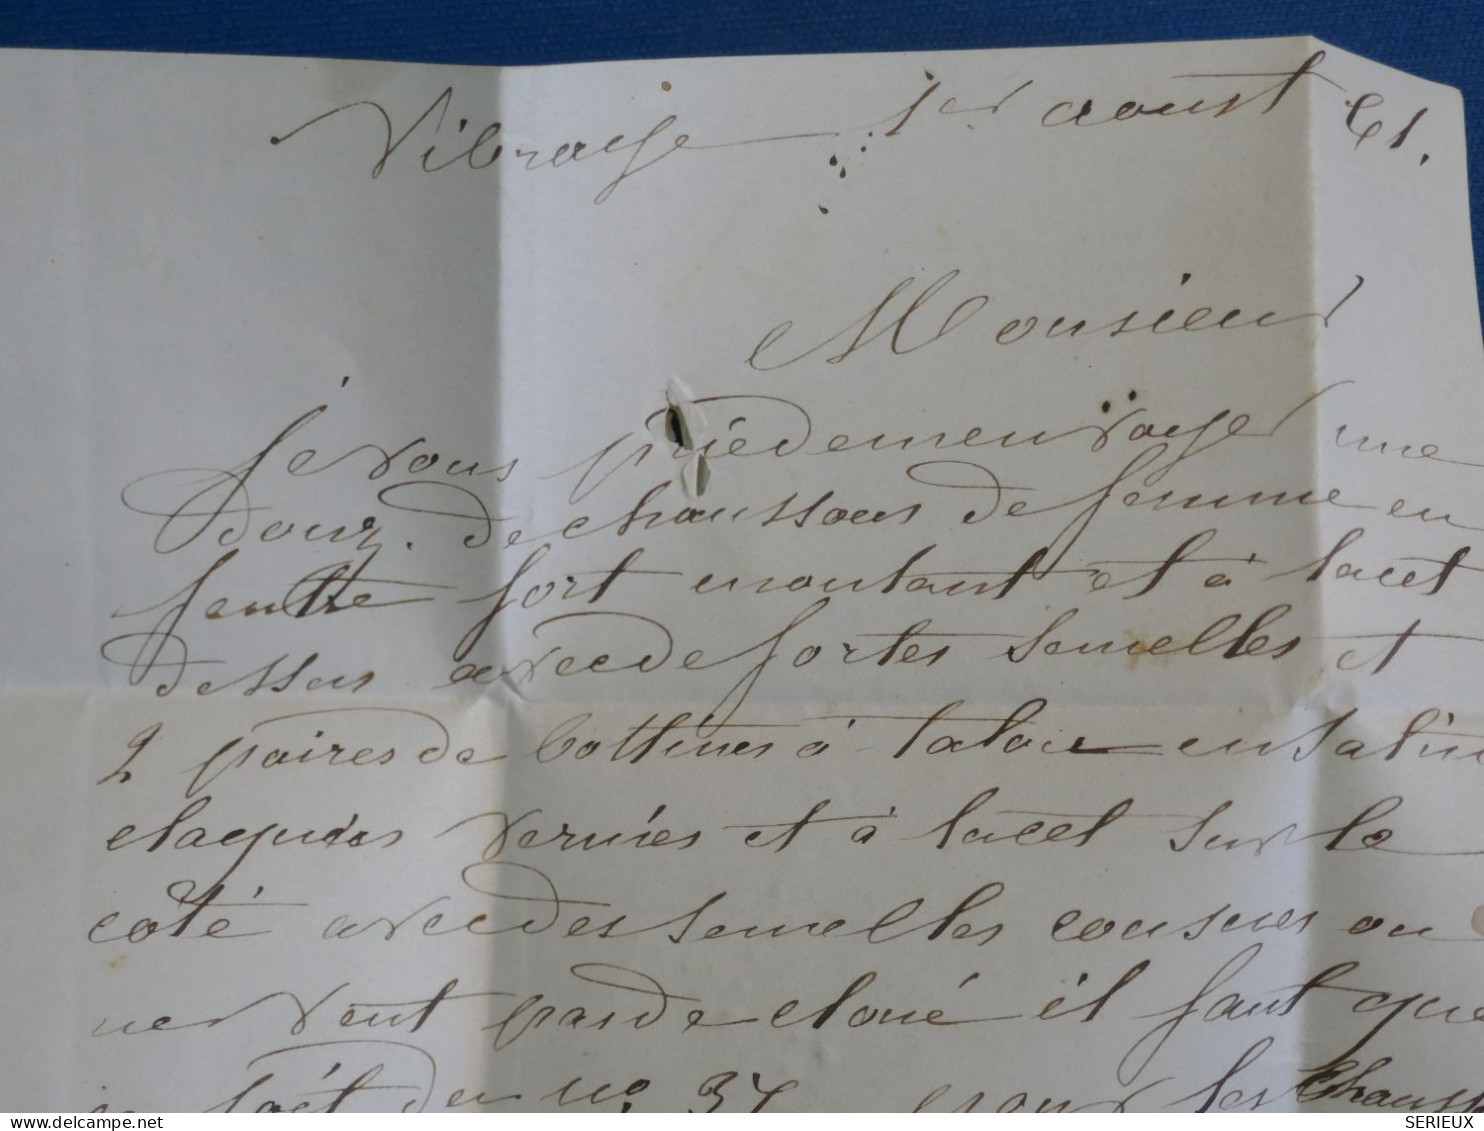 Vibraye 1er aoust 61.
Monsieur
Je vous priedemenvoÿer une
douz. de chaussons de femme en
feutre fort montant et à lacet
dessus avec de fortes semelles et
2 paires de bottines à talon en satin
claquées vernies et à lacet sur le
côté avec des semelles cousues on
ne veut pas de cloué il faut que
soët du no. 37 pour les chauss
delcampe.net
SERIEUX